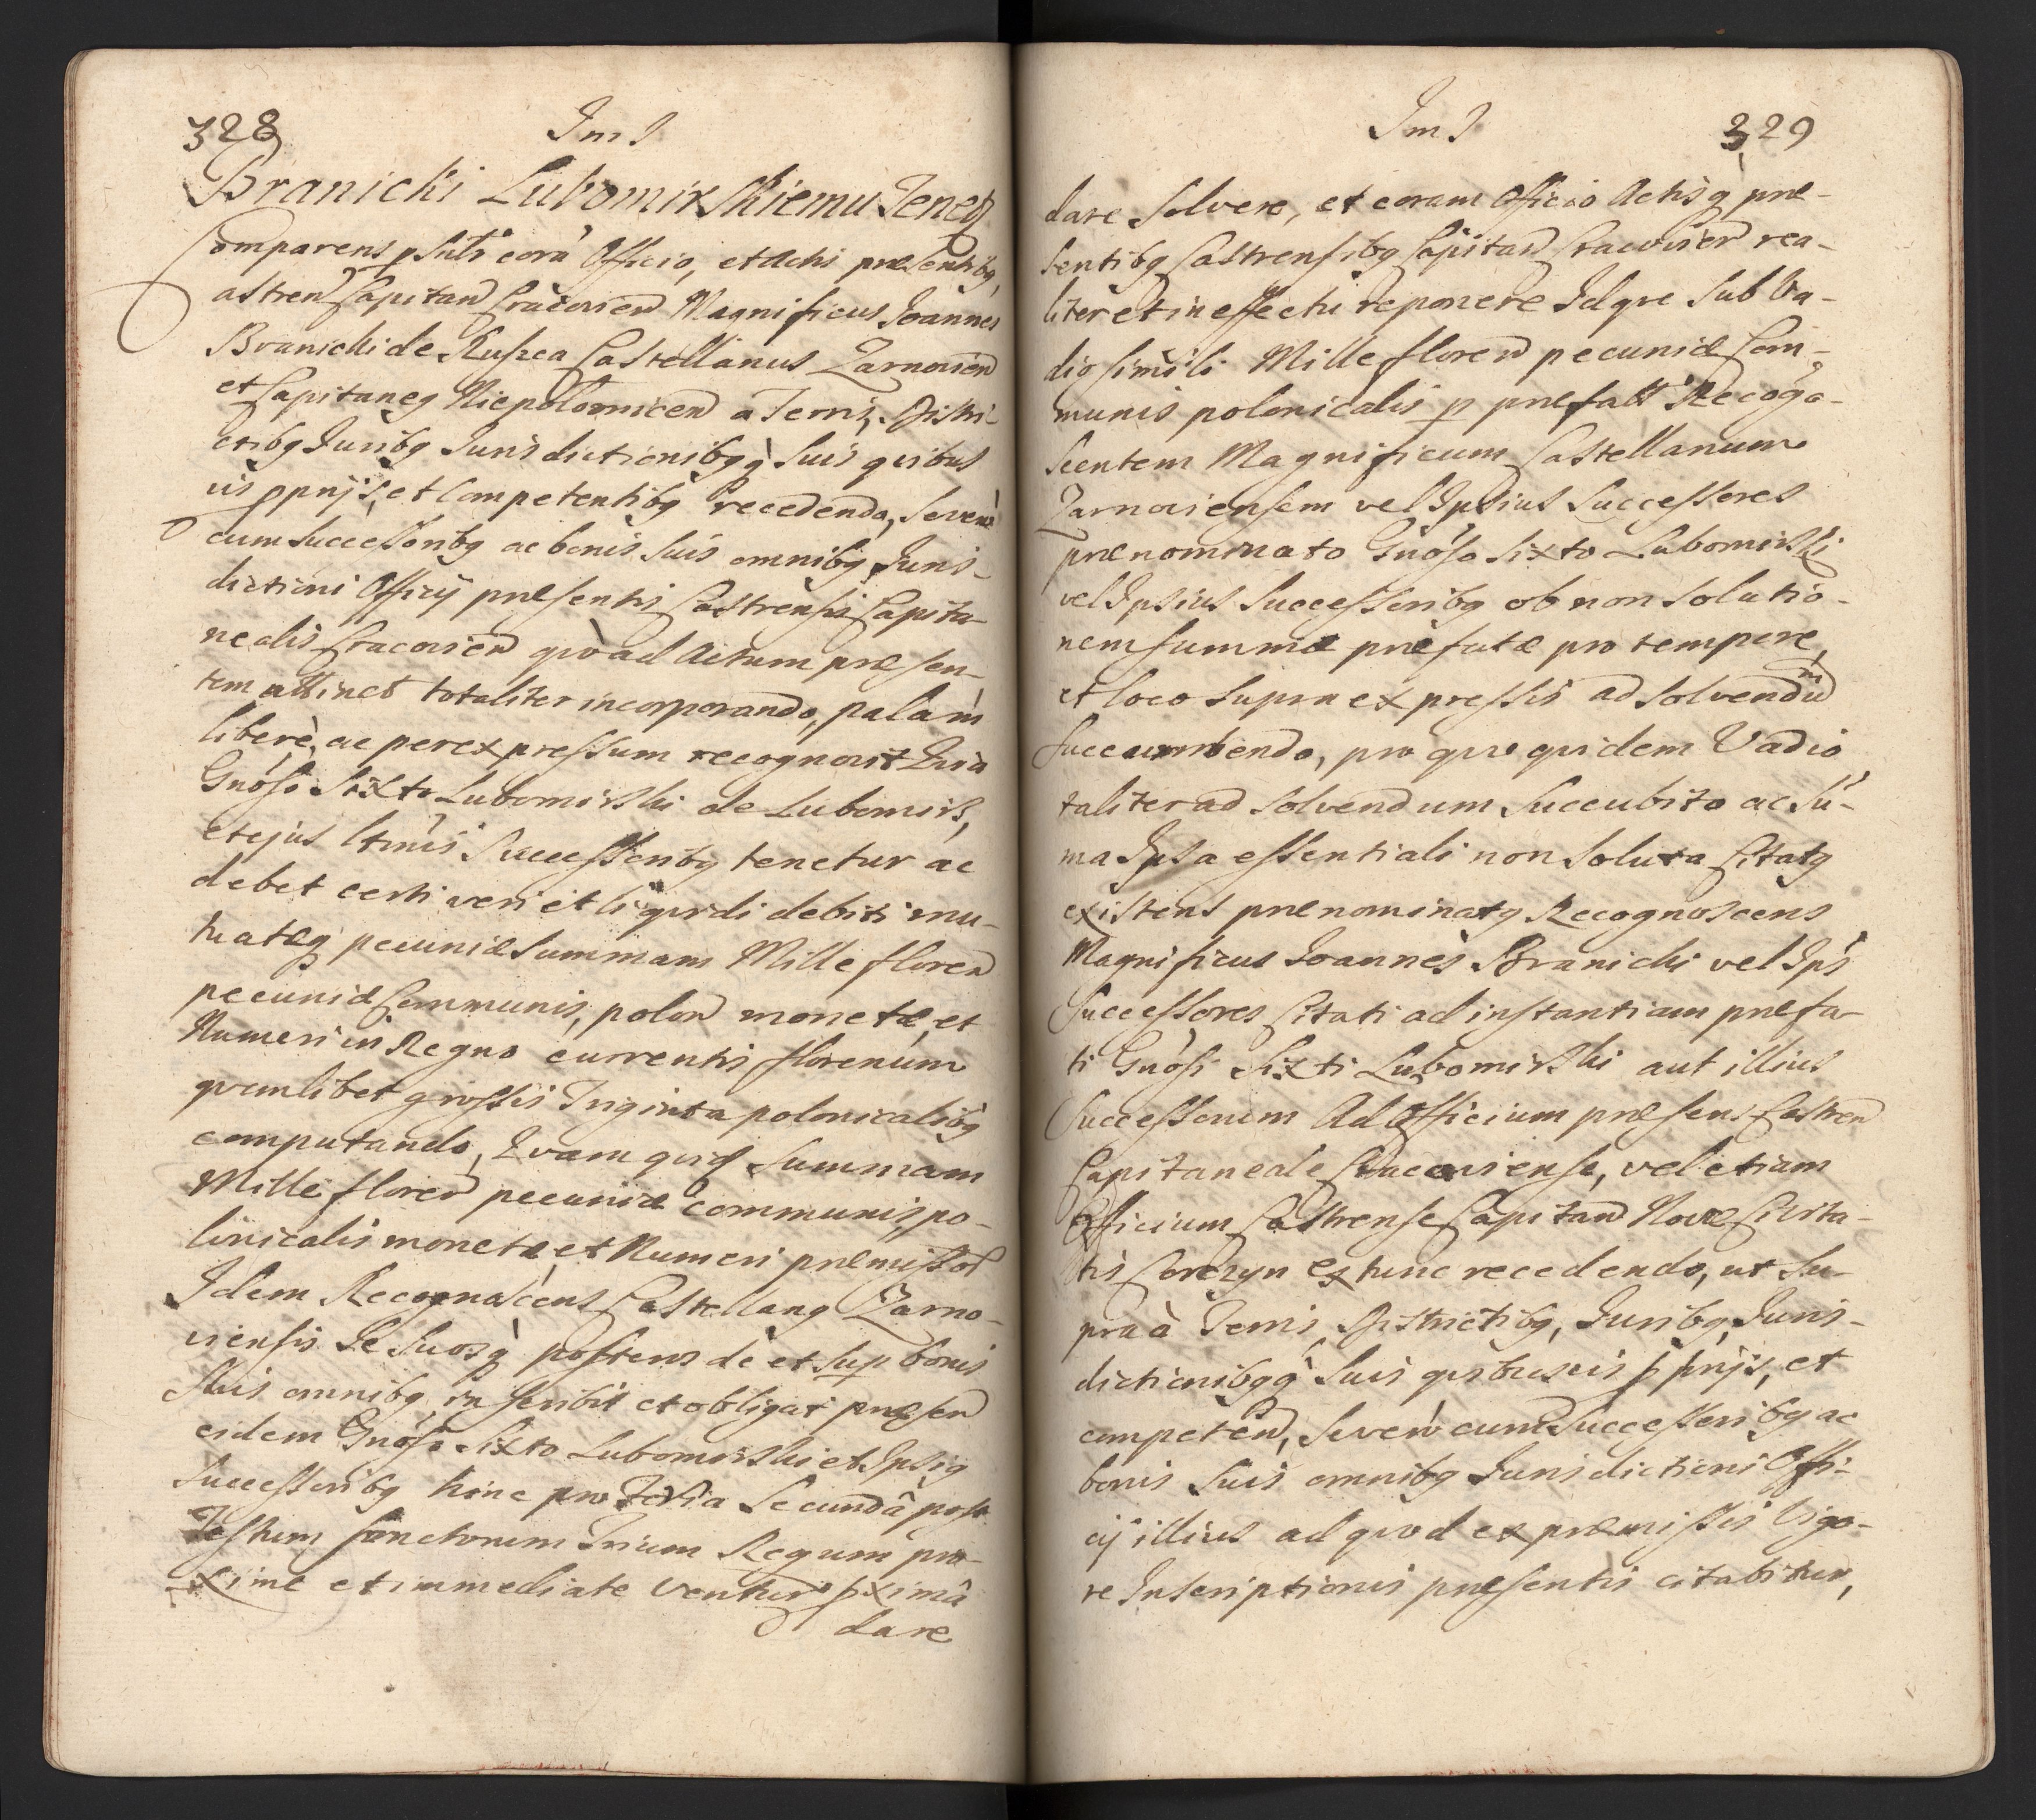 328
Ims
Branicki Lubomirskiemu Tenetz
Comparens psnlr corã Officio, et Actis præsentibg,
astren Capitan Cracovien Magnificus Joannes
Branicki de Ruszca Castellanus Zarnovien
et Capitaneg Niepolomicen à Terris, Distri-
ctibg Juribg Jurisdictionibgq̀ suis quibus
vis pprijs, et competentibg recedendo, severó
cum Successoribg ac bonis suis omnibg, Juris-
dictioni Officij præsentis Castrensis Capita-
nealis Cracovien qvò ad Actum præsen-
tem attinet totaliter incorporando, palàm
liberè, ac per expressum recognovit Qvia
Gnóso Sixto Lubomirski de Lubomirz,
et ejus ltmis Successoribg tenetur ac
debet certi veri et liqvidi debiti mu-
tuatæq pecuniæ Summam Mille floren
pecuniæ Communis, polon monetæ, et
Numeri in Regno currentis florenum
qvemlibet grossis Triginta polonicalibg
computando, Qvam qvid Summam
Mille floren pecuniæ communis, po-
lonicalis monetæ, et Numeri præmissor
Idem Recognoscens Castellang Zarno-
viensis Se Suosq̀ posteros de et sup bonis
suis omnibg inscribit et obligat præsen
eidem Gnóso Sixto Lubomirski et Ipsig
Successoribg hinc pro Feria Secundâ post
Festum Sanctorum Trium Regum pro-
xime et immediate ventur pximâ
dare
Ims
329
dare solvere, et coram Officio Actisq præ-
sentibg Castrensibg Capitan Cracovien rea-
liter et in effectu reponere Idqve sub Va-
dio simili Mille floren pecuniæ Com-
munis polonicalis p præfatt Recogo-
scentem Magnificum Castellanum
Zarnoviensem vel Ipsius Successores
prænominato Gnóso Sixto Lubomirski
vel Ipsius Successoribg ob non solutio-
nem summæ præfatæ pro tempore,
et loco supra expressis ad solvendũ
succumbendo, pro qvo qvidem Vadio
taliter ad solvendum succubito ac Sũ-
ma Ipsa essentiali non soluta Citatg
existens prænominatg Recognoscens
Magnificus Joannes Branicki vel Ips
Successores Citati ad instantiam præfa-
ti Gnósi Sixti Lubomirski aut illius
Successorum Ad Officium præsens Castren
Capitaneale Cracoviense, vel etiam
Officium Castrense Capitan Novæ Civita-
tis Corczyn ex tunc recedendo, ut su-
pra à Terris, Districtibg, Juribg, Juris-
dictionibgq̀ suis qvibusvis pprijs, et
competen, severò cum Successoribg ac
bonis suis omnibg Jurisdictioni Offi-
cij illius ad qvod ex præmissis Vigo-
re Inscriptionis præsentis citabitur,